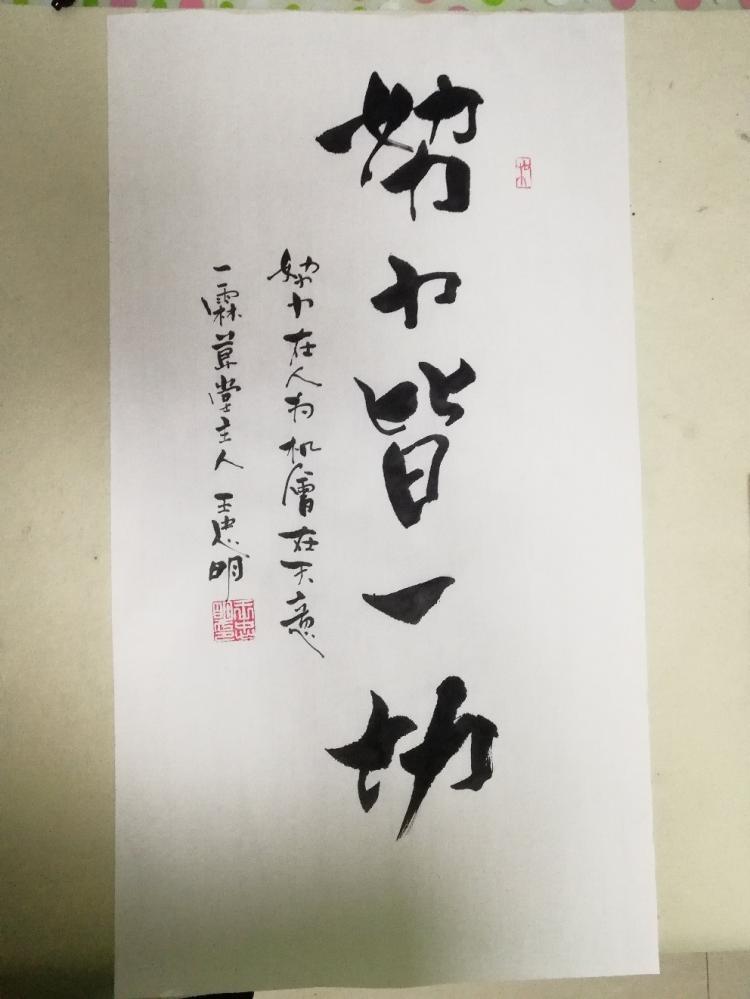 努力皆一切
努力在人为机会在天意
一霖草堂主人 王忠明